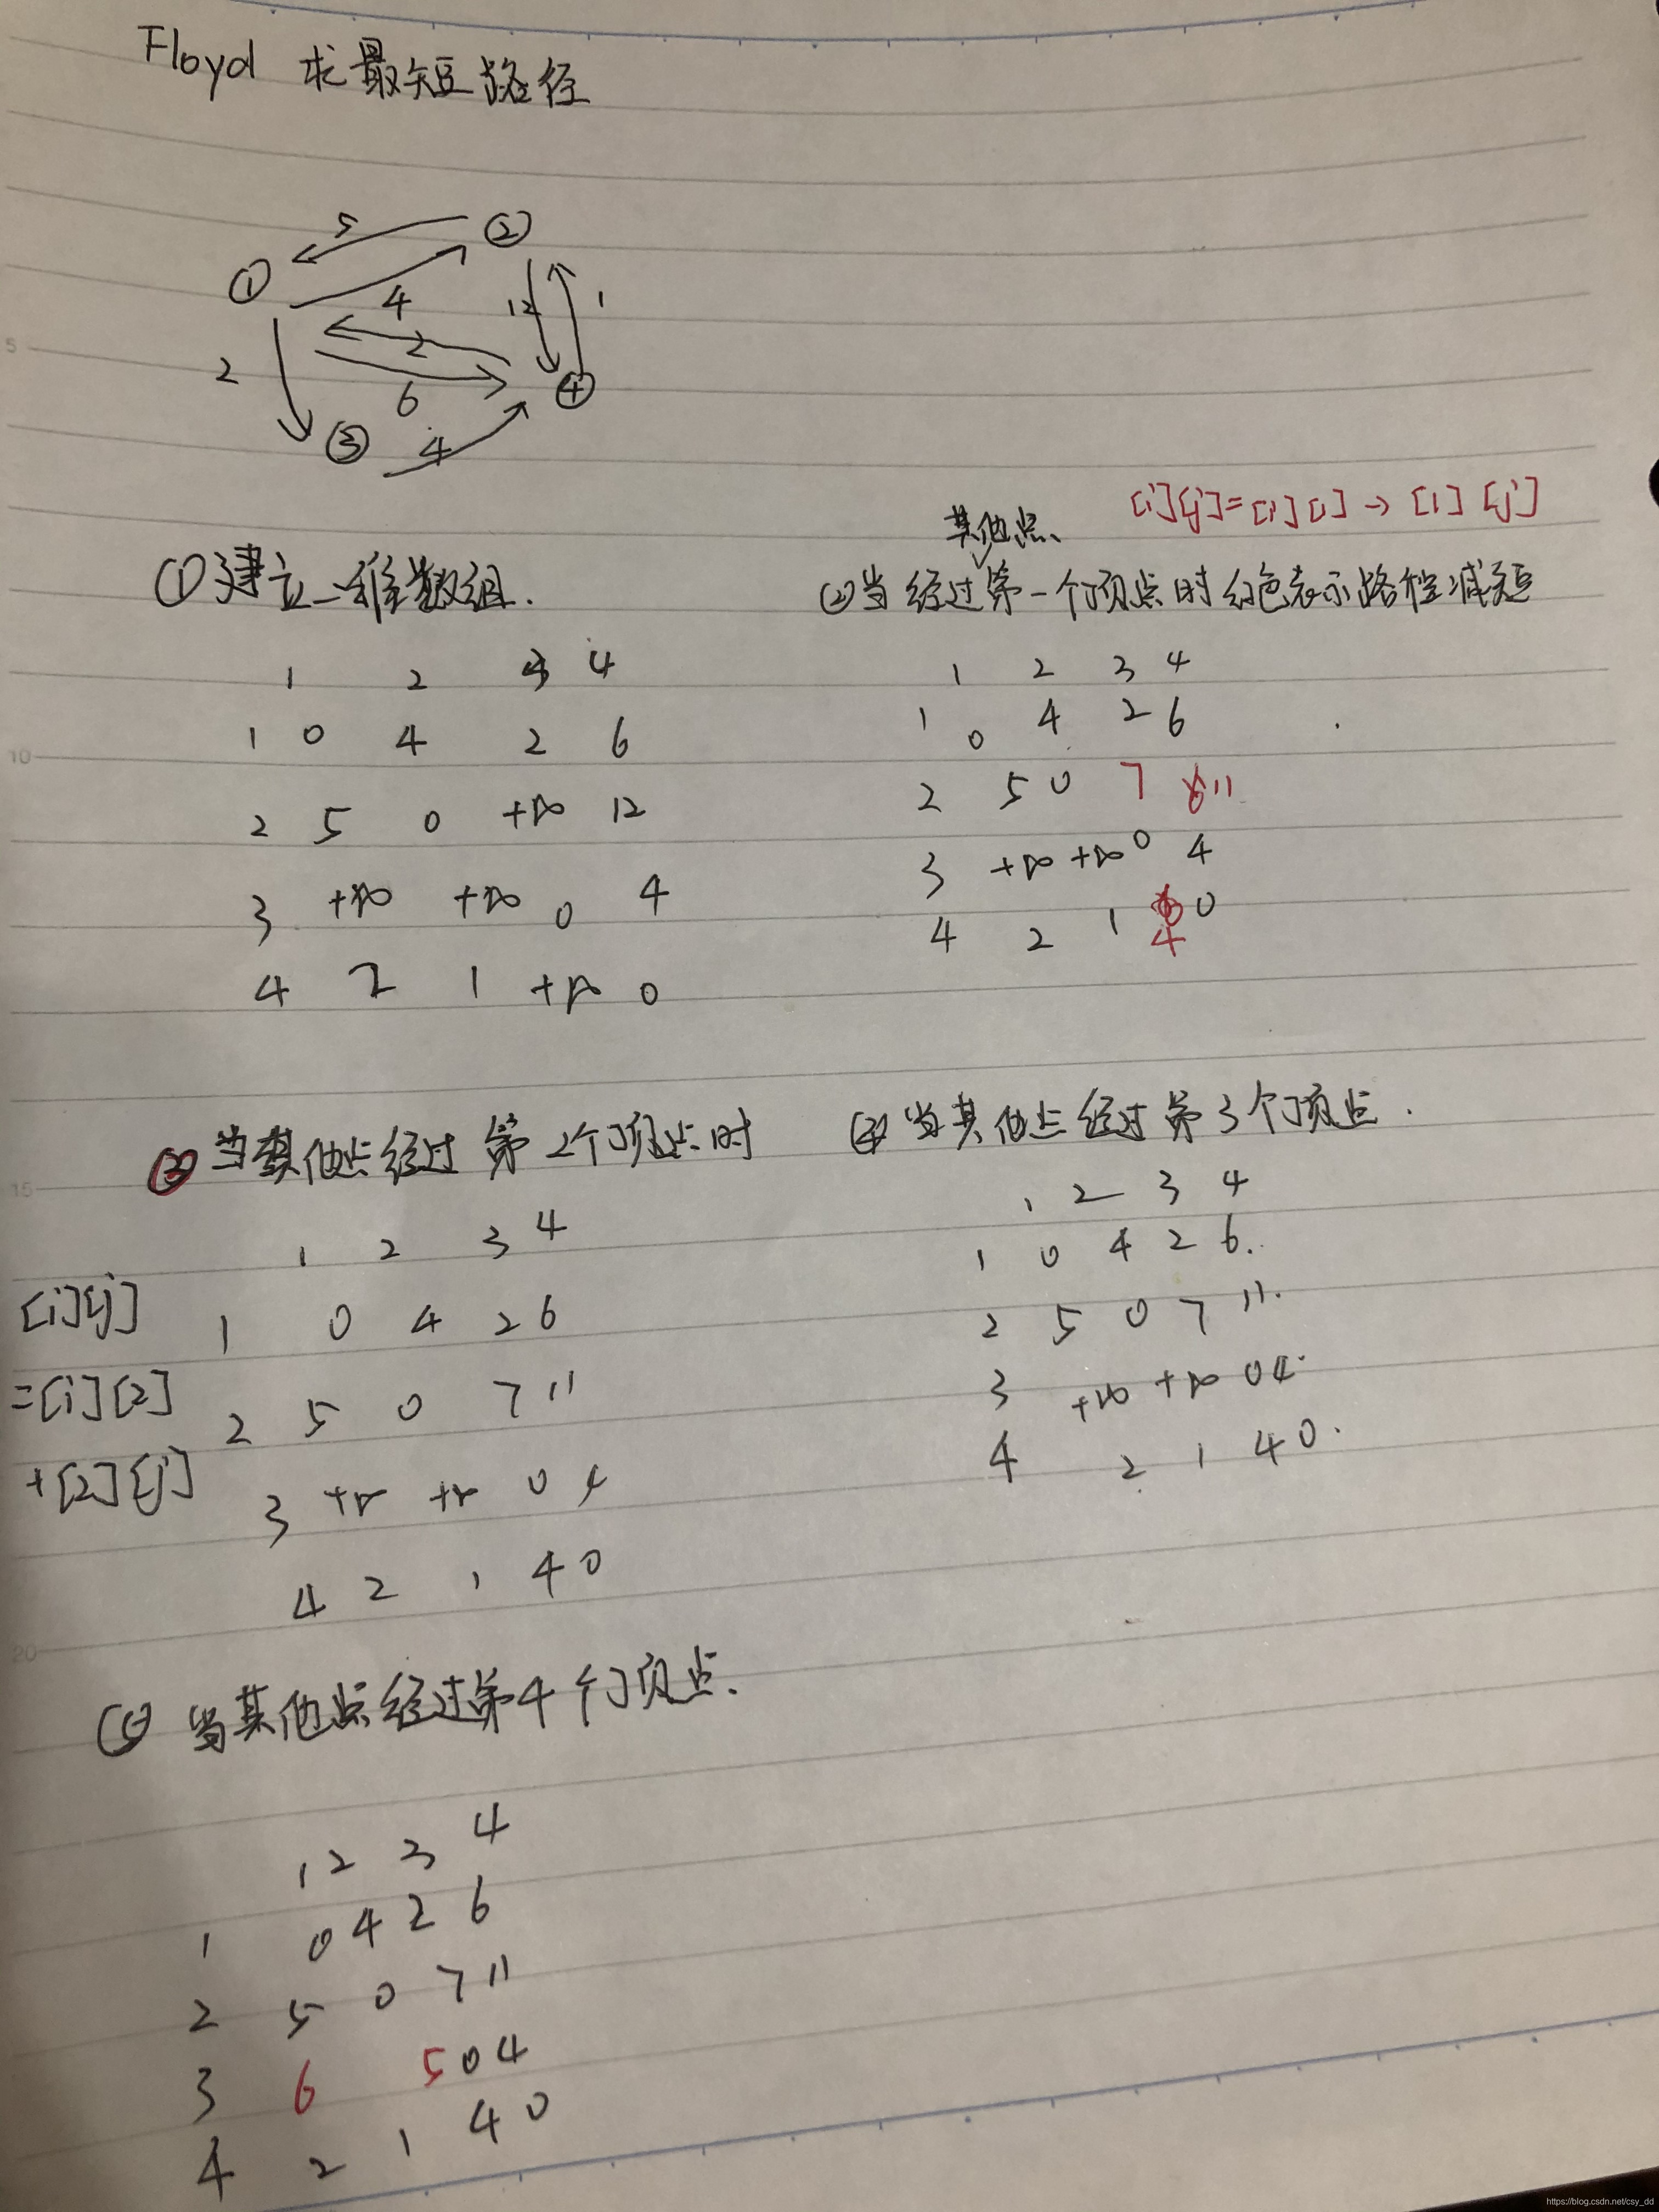 Floyd 求最短路径
5 ②
①
4 12 1
2
2 6 ④
③ 4
[i][j]=[i][1]→[1][j]
其他点
①建立二维数组.
②当经过第一个顶点时红色表示路径减短
1 2 3 4
1 0 4 2 6
2 5 0 +∞ 12
3 +∞ +∞ 0 4
4 2 1 +∞ 0
1 2 3 4
1 0 4 2 6
2 5 0 7 11
3 +∞ +∞ 0 4
4 2 1 4 0
③当其他点经过第2个顶点时
1 2 3 4
[i][j] 1 0 4 2 6
=[i][2] 2 5 0 7 11
+[2][j] 3 +∞ +∞ 0 4
4 2 1 4 0
④当其他点经过第3个顶点.
1 2 3 4
1 0 4 2 6.
2 5 0 7 11.
3 +∞ +∞ 0 4.
4 2 1 4 0.
⑤ 当其他点经过第4个顶点.
1 2 3 4
1 0 4 2 6
2 5 0 7 11
3 6 5 0 4
4 2 1 4 0
5
10
15
20
https://blog.csdn.net/csy_dd